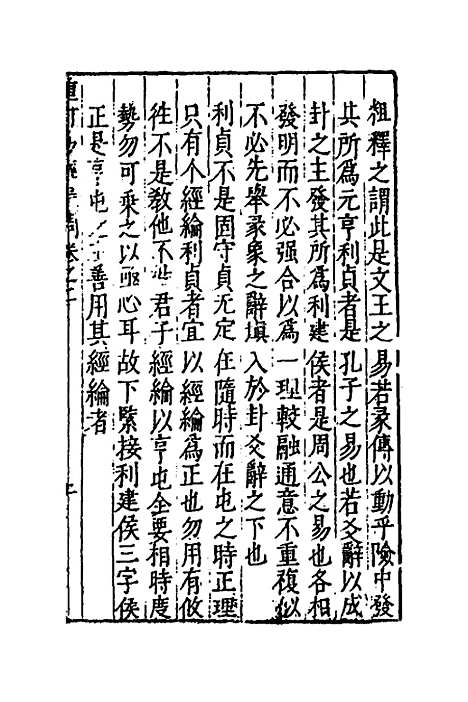 粗釋之謂此是文王之易若彖傳以動乎險中發
其所為元亨利貞者是孔子之易也若爻辭以成
卦之主發其所為利建侯者是周公之易也各相
發明而不必强合以為一理較融通意不重複似
不必先舉彖象之辭塡入於卦爻辭之下也
利貞不是固守貞无定在隨時而在屯之時正理
只有个經綸利貞者宜以經綸為正也勿用有攸
徃不是教他不 君子經綸以亨屯全要相時度
勢勿可乘之以亟心耳故下緊接利建侯三字侯
正是亨屯之 善用其經綸者